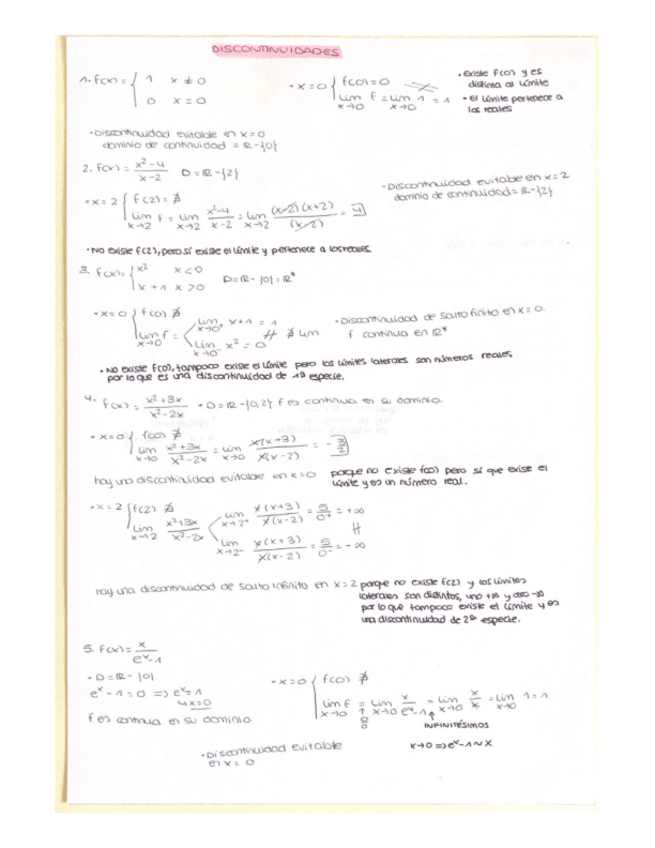 DISCONTINUIDADES
1. f(x) = { 1 x ≠ 0
0 x = 0
• x = 0 { f(0) = 0
lim x→0 f = lim x→0 1 = 1
• Existe f(0) y es
distinta al límite
• El límite pertenece a
los reales
• Discontinuidad evitable en x = 0
dominio de continuidad = ℝ - {0}
2. f(x) = x²-4 / x-2 D = ℝ - {2}
• x = 2 { f(2) = ∄
lim x→2 f = lim x→2 x²-4 / x-2 = lim x→2 (x-2)(x+2) / (x-2) = 4
• Discontinuidad evitable en x = 2
dominio de continuidad = ℝ - {2}
• No existe f(2), pero sí existe el límite y pertenece a los reales.
3. f(x) = { x² x < 0
x + 1 x > 0
D = ℝ - {0} = ℝ*
• x = 0 { f(0) ∄
lim x→0 f = lim x→0⁺ x+1 = 1
lim x→0⁻ x² = 0
∄ lim
• Discontinuidad de salto finito en x = 0.
f continua en ℝ*
• No existe f(0), tampoco existe el límite pero los límites laterales son números reales
por lo que es una discontinuidad de 1ª especie.
4. f(x) = x²+3x / x²-2x • D = ℝ - {0,2} f es continua en su dominio.
• x = 0 { f(0) ∄
lim x→0 x²+3x / x²-2x = lim x→0 x(x+3) / x(x-2) = -3/2
hay una discontinuidad evitable en x = 0 porque no existe f(0) pero sí que existe el
límite y es un número real.
• x = 2 { f(2) ∄
lim x→2 x²+3x / x²-2x
lim x→2⁺ x(x+3) / x(x-2) = 5/0⁺ = +∞
lim x→2⁻ x(x+3) / x(x-2) = 5/0⁻ = -∞
hay una discontinuidad de salto infinito en x = 2 porque no existe f(2) y los límites
laterales son distintos, uno +∞ y otro -∞
por lo que tampoco existe el límite y es
una discontinuidad de 2ª especie.
5. f(x) = x / eˣ-1
• D = ℝ - {0}
eˣ - 1 = 0 ⇒ eˣ = 1
↳ x = 0
f es continua en su dominio
• x = 0 { f(0) ∄
lim x→0 f = lim x→0 x / eˣ-1 = lim x→0 x / x = lim x→0 1 = 1
0/0
INFINITÉSIMOS
x→0 ⇒ eˣ-1 ~ x
• Discontinuidad evitable
en x = 0